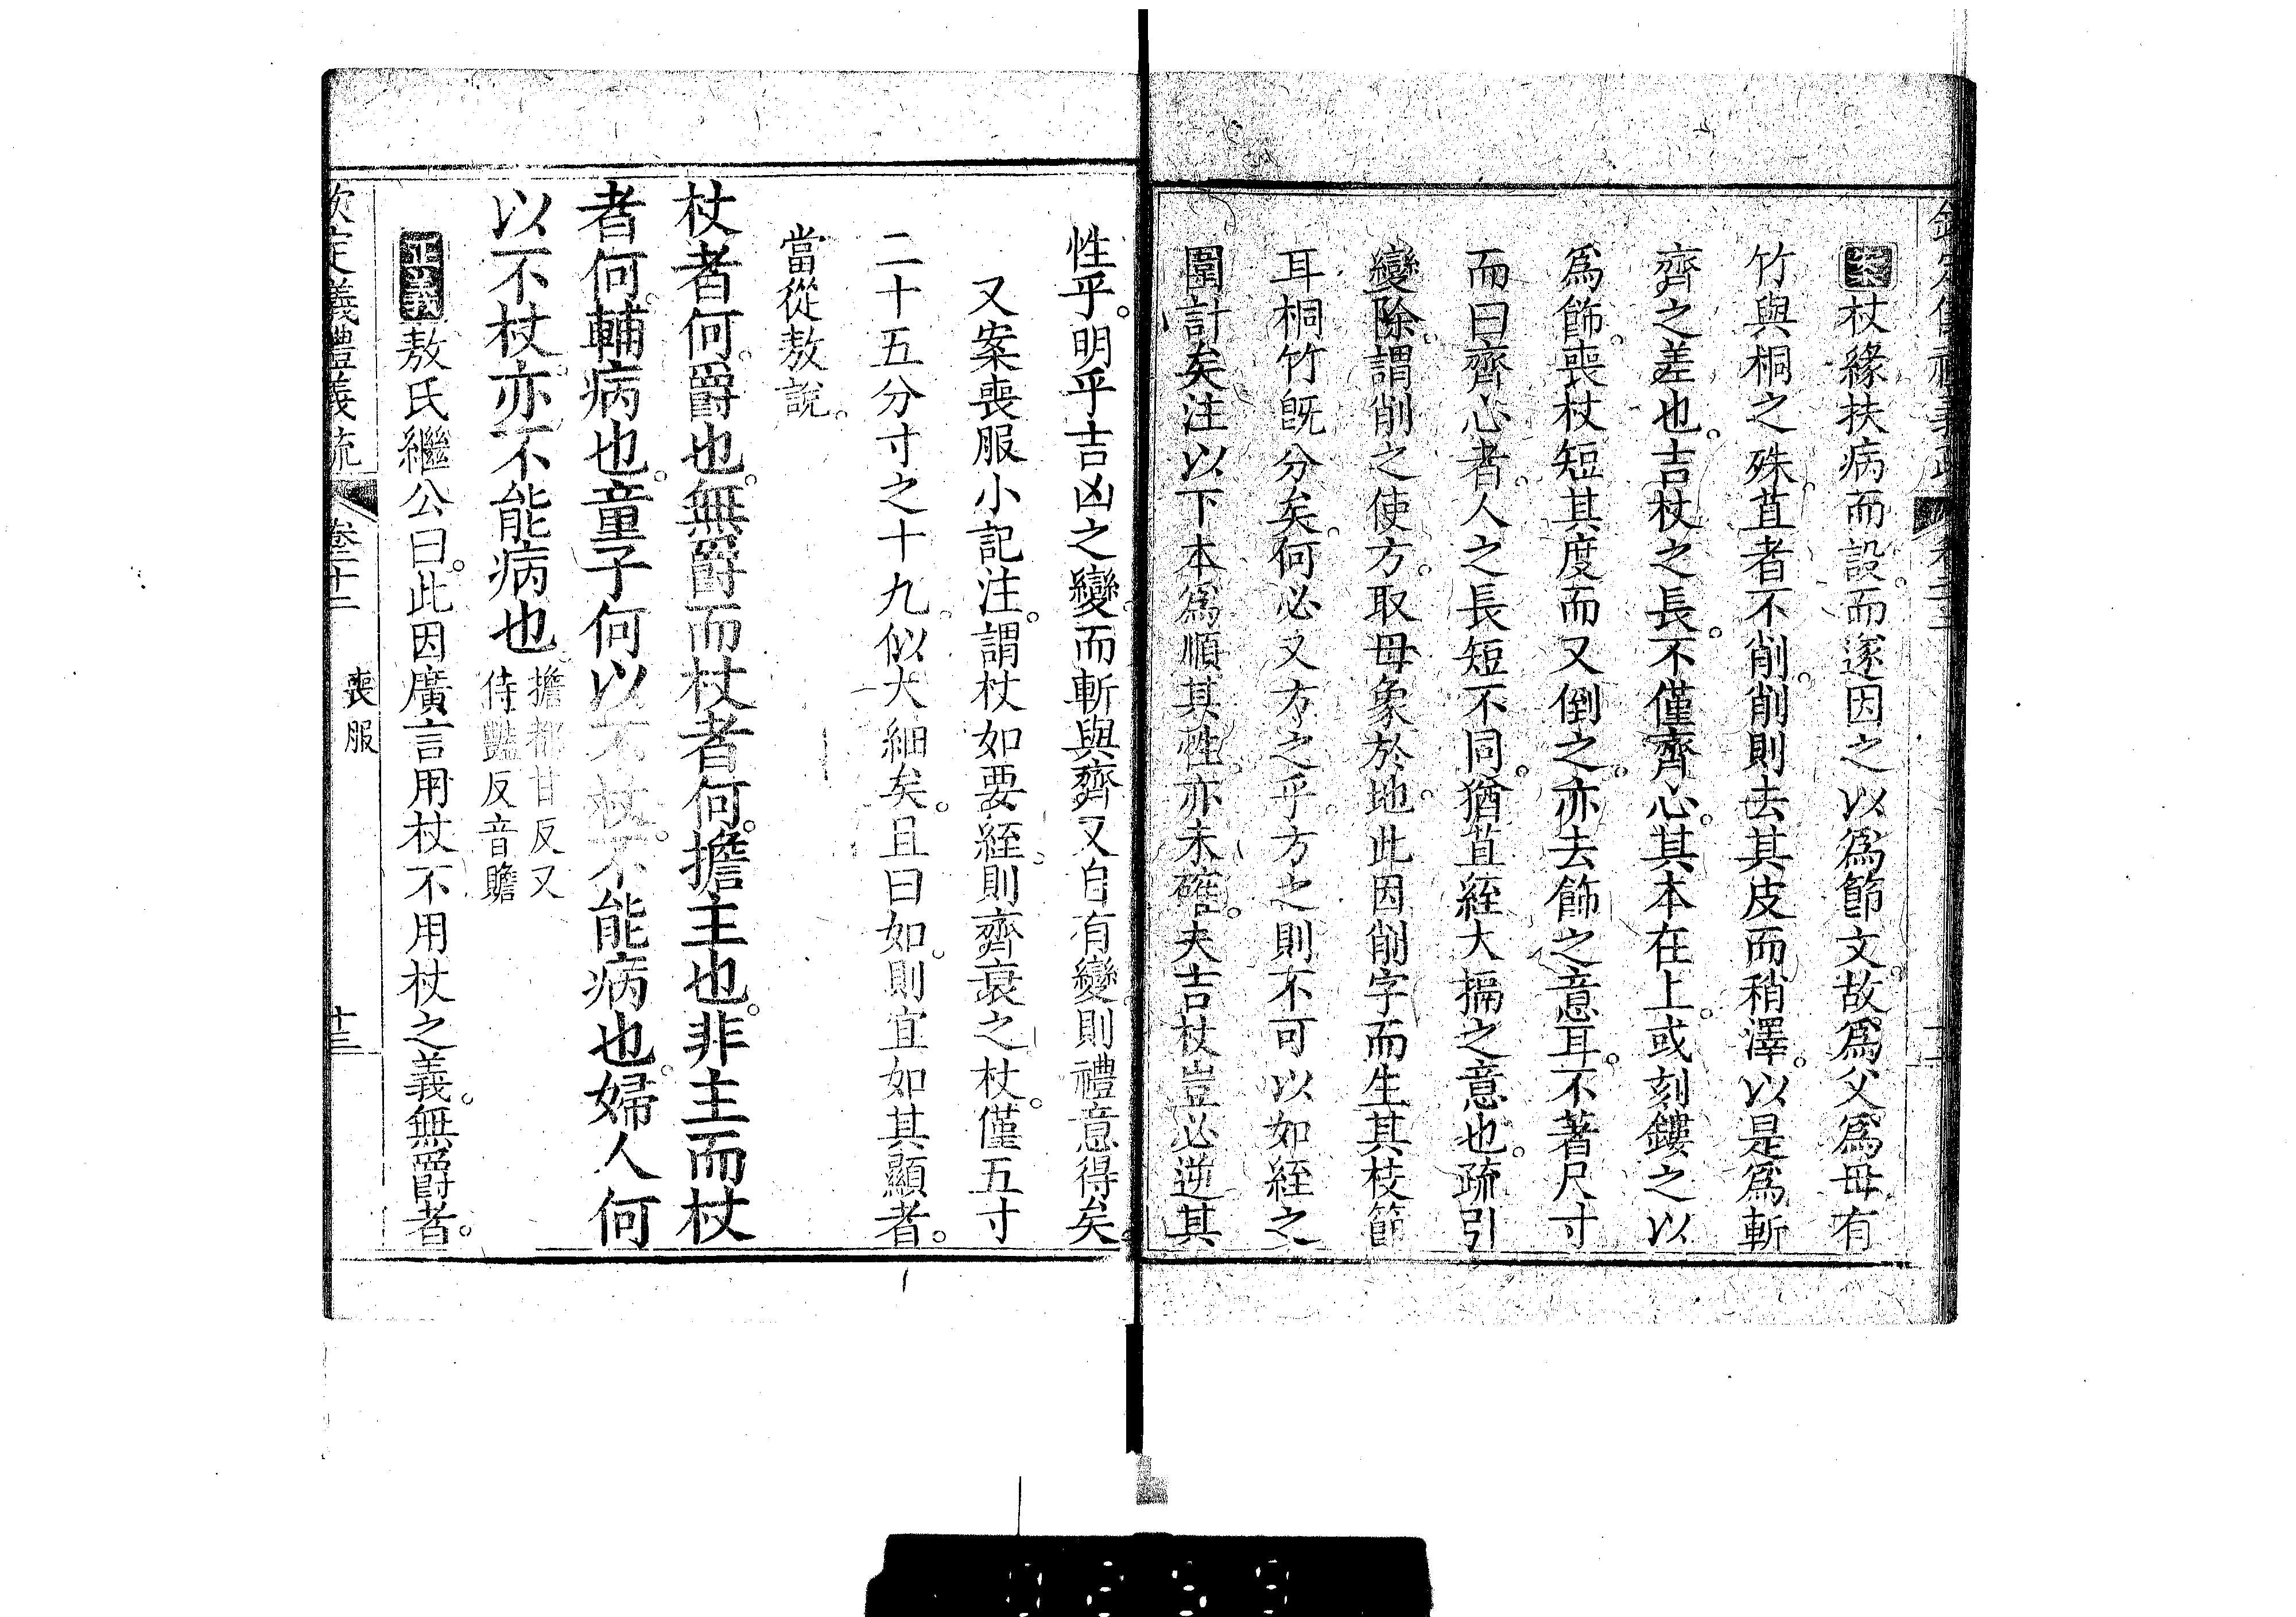 案杖緣扶病而設而遂因之以爲節文故爲父爲母有
竹與桐之殊苴者不削削則去其皮而稍澤以是爲斬
齊之差也吉杖之長不僅齊心其本在上或刻鏤之以
爲飾喪杖短其度而又倒之亦去飾之意耳不著尺寸
而曰齊心者人之長短不同猶苴絰大搹之意也疏引
變除謂削之使方取母象於地此因削字而生其枝節
耳桐竹旣分矣何必又方之乎方之則不可以如絰之
圍計矣注以下本爲順其性亦未確夫吉杖豈必逆其
性乎明乎吉凶之變而斬與齊又自有變則禮意得矣
又案喪服小記注謂杖如要絰則齊衰之杖僅五寸
二十五分寸之十九似大細矣且曰如則宜如其顯者
當從敖說
杖者何爵也無爵而杖者何擔主也非主而杖
者何輔病也童子何以不杖不能病也婦人何
以不杖亦不能病也擔都甘反又
侍豔反音贍
正義敖氏繼公曰此因廣言用杖不用杖之義無爵者
欽定儀禮義疏 卷二十二 喪服 十三